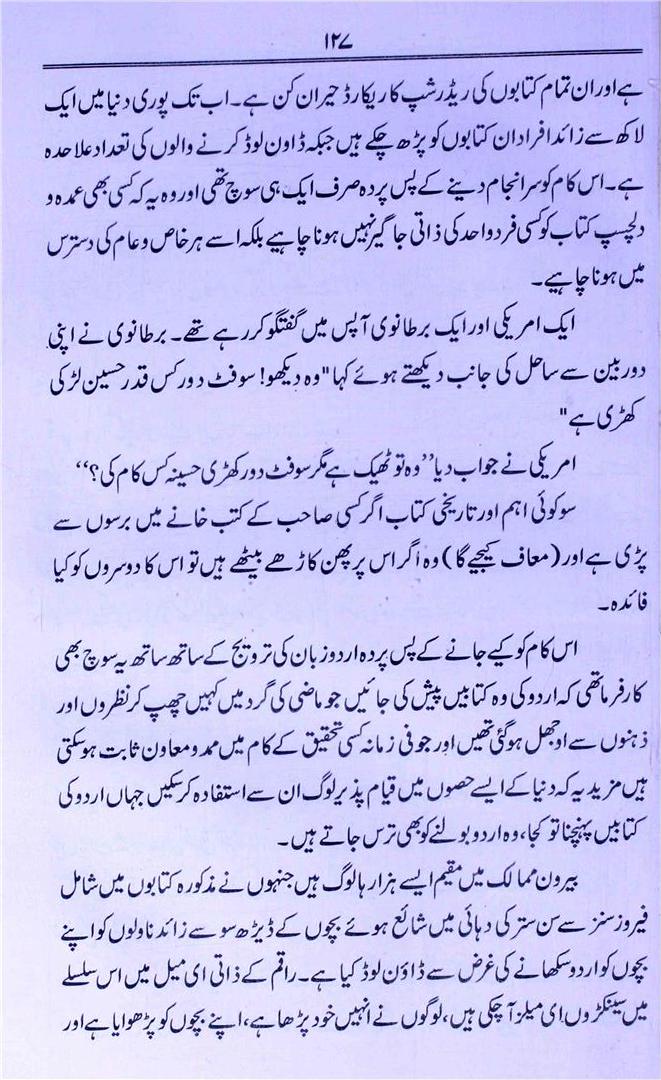 ۱۲۷
ہے اور ان تمام کتابوں کی ریڈرشپ کا ریکارڈ حیران کن ہے۔ اب تک پوری دنیا میں ایک
لاکھ سے زائد افراد ان کتابوں کو پڑھ چکے ہیں جبکہ ڈاون لوڈ کرنے والوں کی تعداد علاحدہ
ہے۔ اس کام کو سرانجام دینے کے پس پردہ صرف ایک ہی سوچ تھی اور وہ یہ کہ کسی بھی عمدہ و
دلچسپ کتاب کو کسی فرد واحد کی ذاتی جاگیر نہیں ہونا چاہیے بلکہ اسے ہر خاص و عام کی دسترس
میں ہونا چاہیے۔
ایک امریکی اور ایک برطانوی آپس میں گفتگو کر رہے تھے۔ برطانوی نے اپنی
دوربین سے ساحل کی جانب دیکھتے ہوئے کہا "وہ دیکھو! سوفٹ دور کس قدر حسین لڑکی
کھڑی ہے"
امریکی نے جواب دیا ’’وہ تو ٹھیک ہے مگر سوفٹ دور کھڑی حسینہ کس کام کی؟‘‘
سو کوئی اہم اور تاریخی کتاب اگر کسی صاحب کے کتب خانے میں برسوں سے
پڑی ہے اور (معاف کیجیے گا) وہ اگر اس پر پھن کاڑھے بیٹھے ہیں تو اس کا دوسروں کو کیا
فائدہ۔
اس کام کو کیے جانے کے پس پردہ اردو زبان کی ترویج کے ساتھ ساتھ یہ سوچ بھی
کارفرما تھی کہ اردو کی وہ کتابیں پیش کی جائیں جو ماضی کی گرد میں کہیں چھپ کر نظروں اور
ذہنوں سے اوجھل ہو گئی تھیں اور جو فی زمانہ کسی تحقیق کے کام میں ممد و معاون ثابت ہو سکتی
ہیں مزید یہ کہ دنیا کے ایسے حصوں میں قیام پذیر لوگ ان سے استفادہ کر سکیں جہاں اردو کی
کتابیں پہنچنا تو کجا، وہ اردو بولنے کو بھی ترس جاتے ہیں۔
بیرون ممالک میں مقیم ایسے ہزارہا لوگ ہیں جنہوں نے مذکورہ کتابوں میں شامل
فیروز سنز سے سن ستر کی دہائی میں شائع ہوئے بچوں کے ڈیڑھ سو سے زائد ناولوں کو اپنے
بچوں کو اردو سکھانے کی غرض سے ڈاؤن لوڈ کیا ہے۔ راقم کے ذاتی ای میل میں اس سلسلے
میں سینکڑوں ای میلز آچکی ہیں، لوگوں نے انہیں خود پڑھا ہے، اپنے بچوں کو پڑھوایا ہے اور